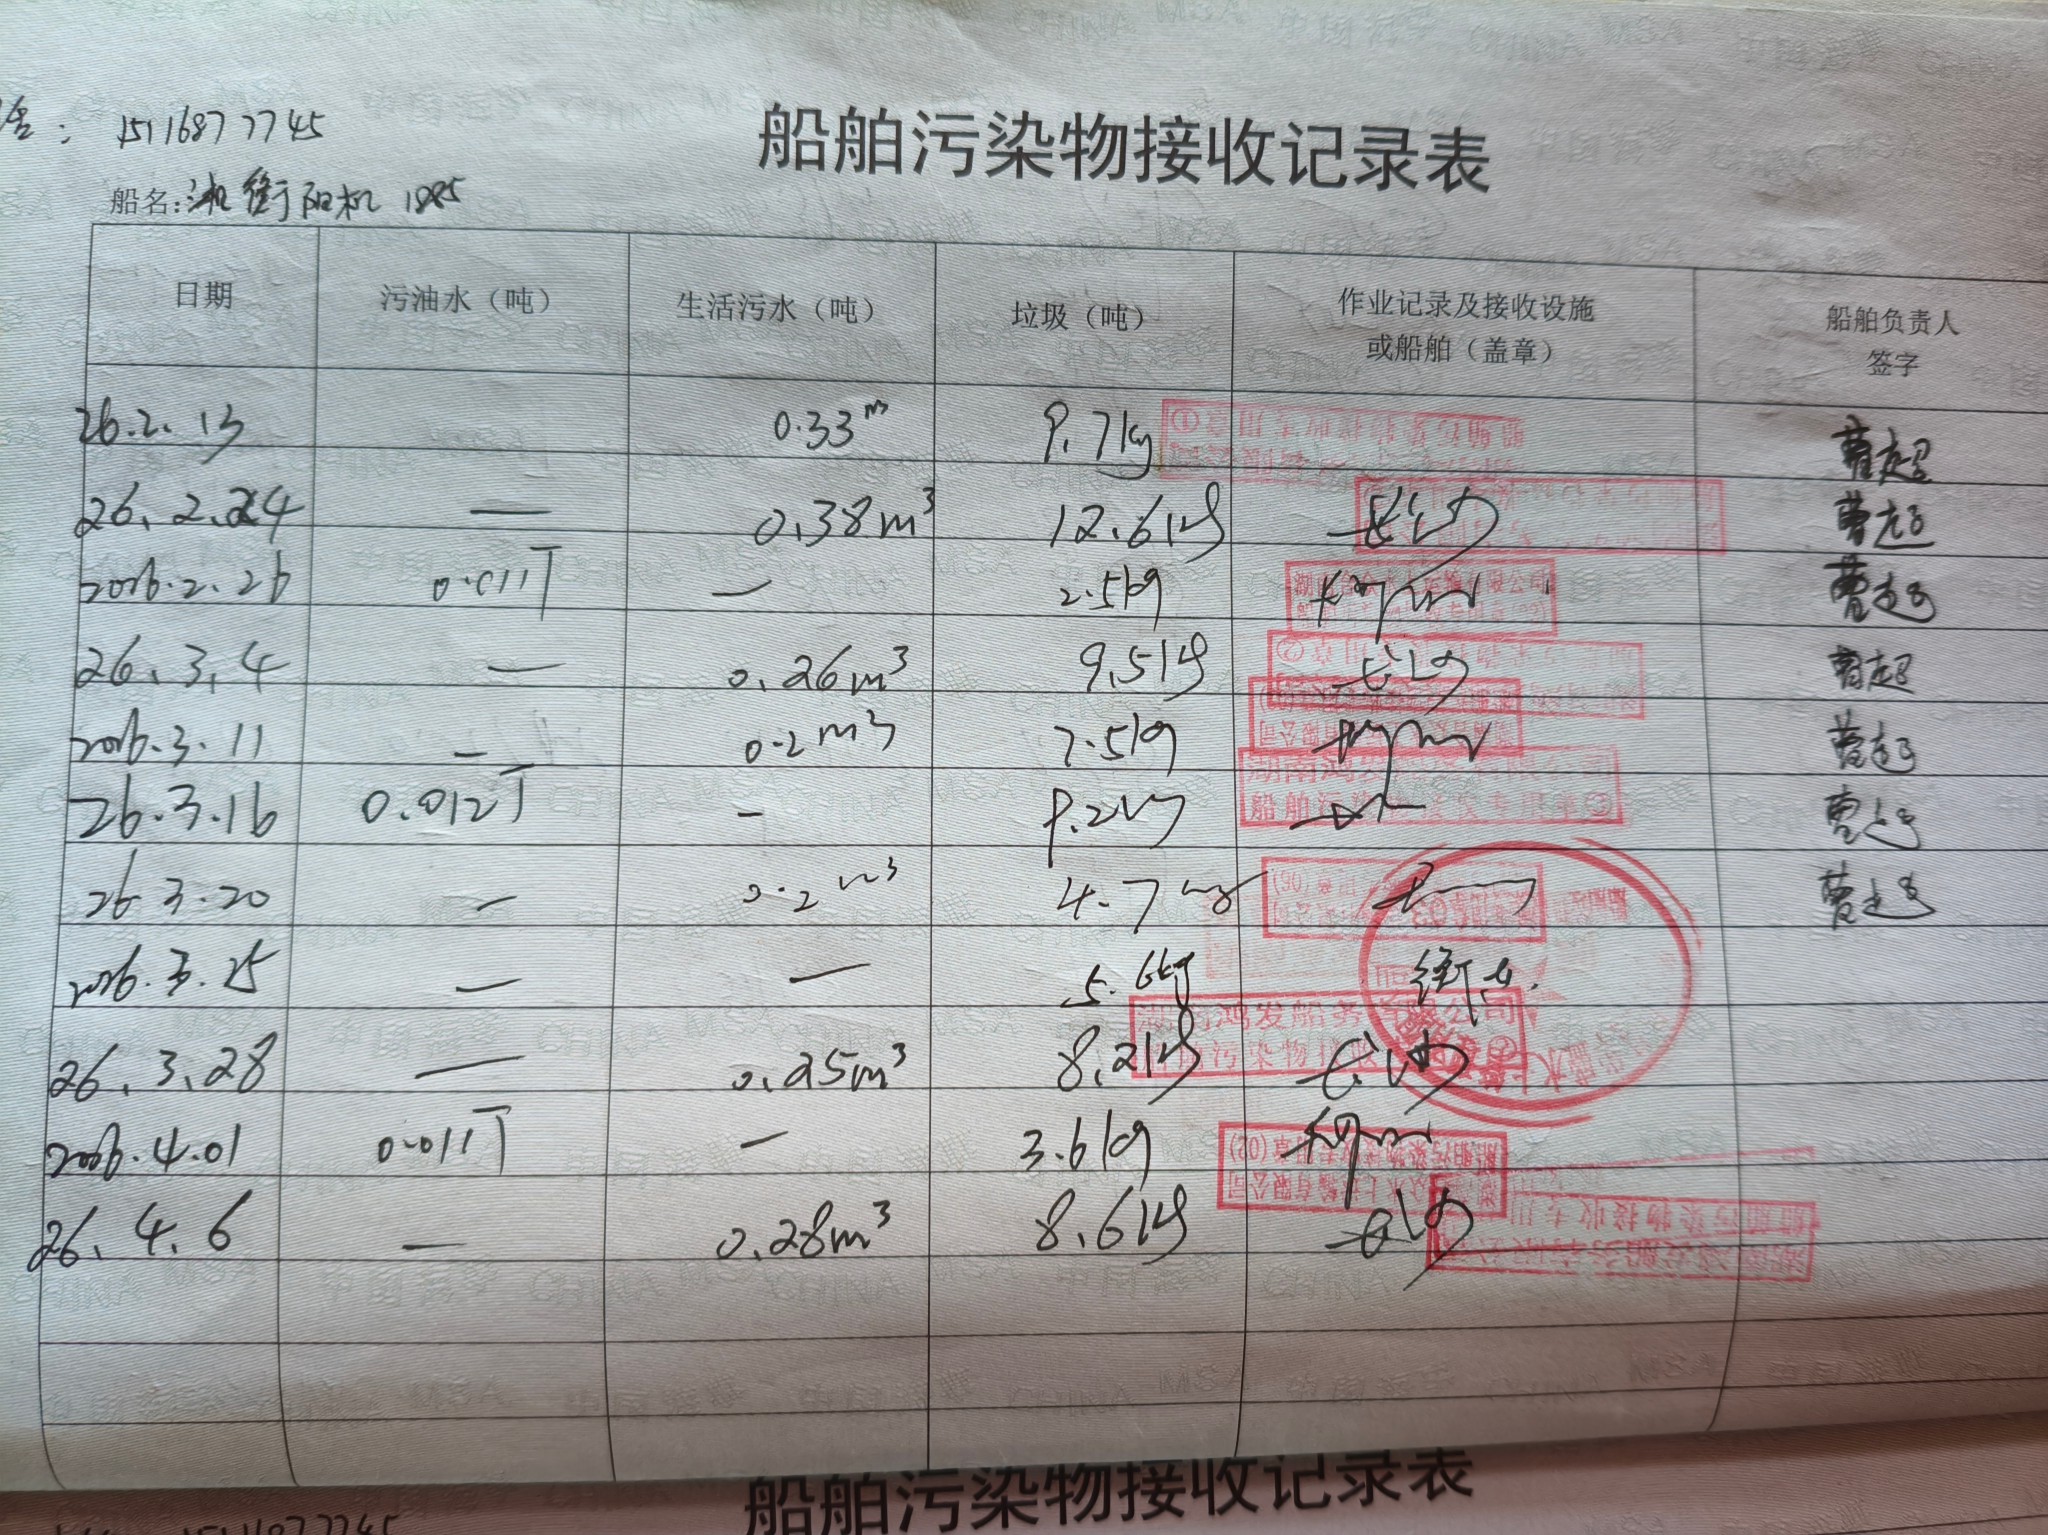 15116877745
船舶污染物接收记录表
船名:湘衡阳机
日期 污油水（吨） 生活污水（吨） 垃圾（吨） 作业记录及接收设施或船舶（盖章） 船舶负责人签字
26.2.13 0.33m³ 9.7kg 曹超
26.2.24 — 0.38m³ 12.6kg 长沙 曹超
2026.2.26 0.011T — 2.5kg 曹超
26.3.4 — 0.26m³ 9.5kg 长沙 曹超
2026.3.11 — 0.2m³ 7.5kg 曹超
26.3.16 0.012T — 9.2kg 曹超
26.3.20 — 0.2m³ 4.7kg 曹超
2026.3.25 — — 5.6kg
26.3.28 — 0.25m³ 8.2kg 长沙
2026.4.01 0.011T — 3.6kg
26.4.6 — 0.28m³ 8.6kg 长沙
船舶污染物接收记录表
15116877745